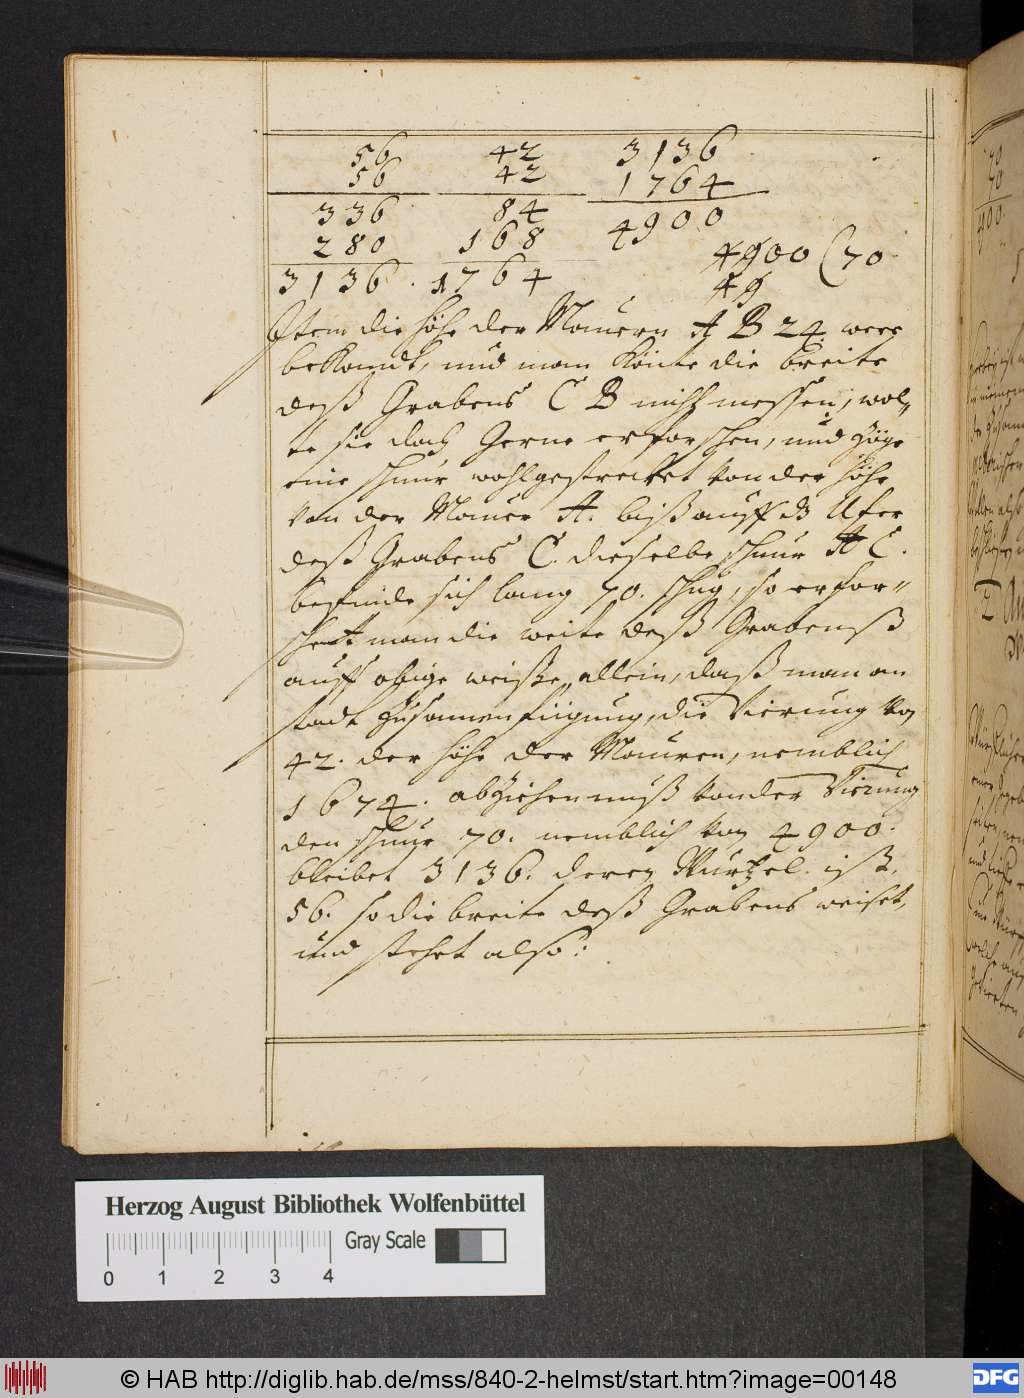 56 42 3136
56 42 1764
336 84 4900
280 168 4900 (70
3136 . 1764 49
Item die höhe der Mauern A B 24. were
bekandt, und man könte die breite
deß Grabens C B nicht messen, wol„
te sie doch Gerne erforschen, und züge
eine schnur wohlgestrecket von der höhe
von der Mauer A. biß auff dz Ufer
deß Grabens C. dieselbe schnur A C.
befinde sich lang 70. schug, so erfor„
schet man die weite deß Grabenß
auff obige weiße, allein, daß man an
stadt zusamenfügung, die Vierung von
42. der höhe der Mauren, nemblich
1674. abziehen muß von der Vierung
den schnur 70. nemblich von 4900.
bleibet 3136. deren Wurtzel. ist,
56. so die breite deß Grabens weiset,
und stehet also:
Herzog August Bibliothek Wolfenbüttel
Gray Scale
0 1 2 3 4
© HAB http://diglib.hab.de/mss/840-2-helmst/start.htm?image=00148
DFG